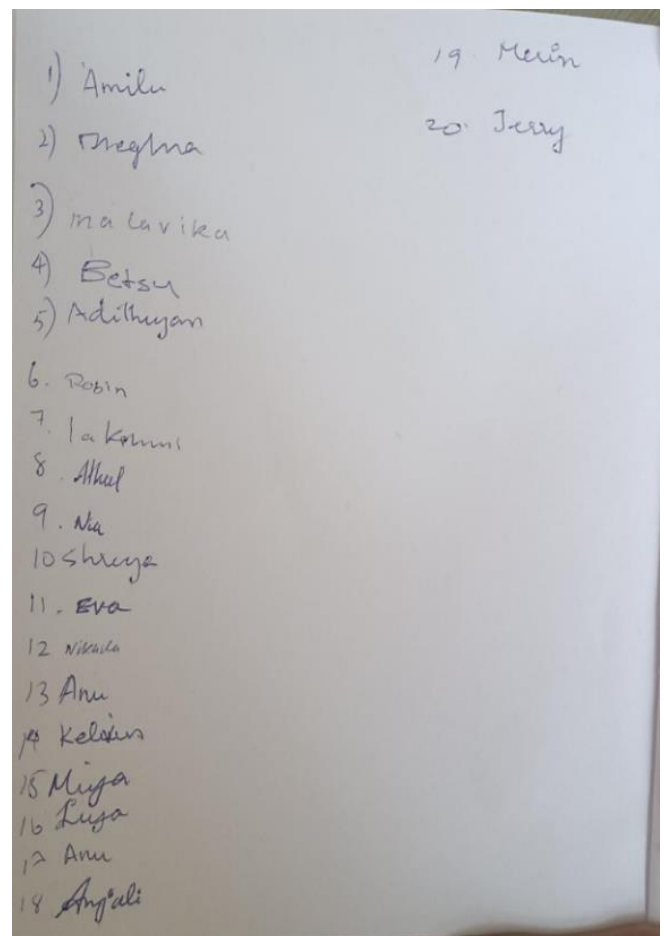 1) Amilu
2) Meghna
3) malavika
4) Betsy
5) Adithyan
6. Robin
7. lakshmi
8. Athul
9. Nia
10 Shreya
11. Eva
12
13 Anu
14
15 Miya
16 Luya
17 Anu
18 Anjali
19. Merin
20. Jerry